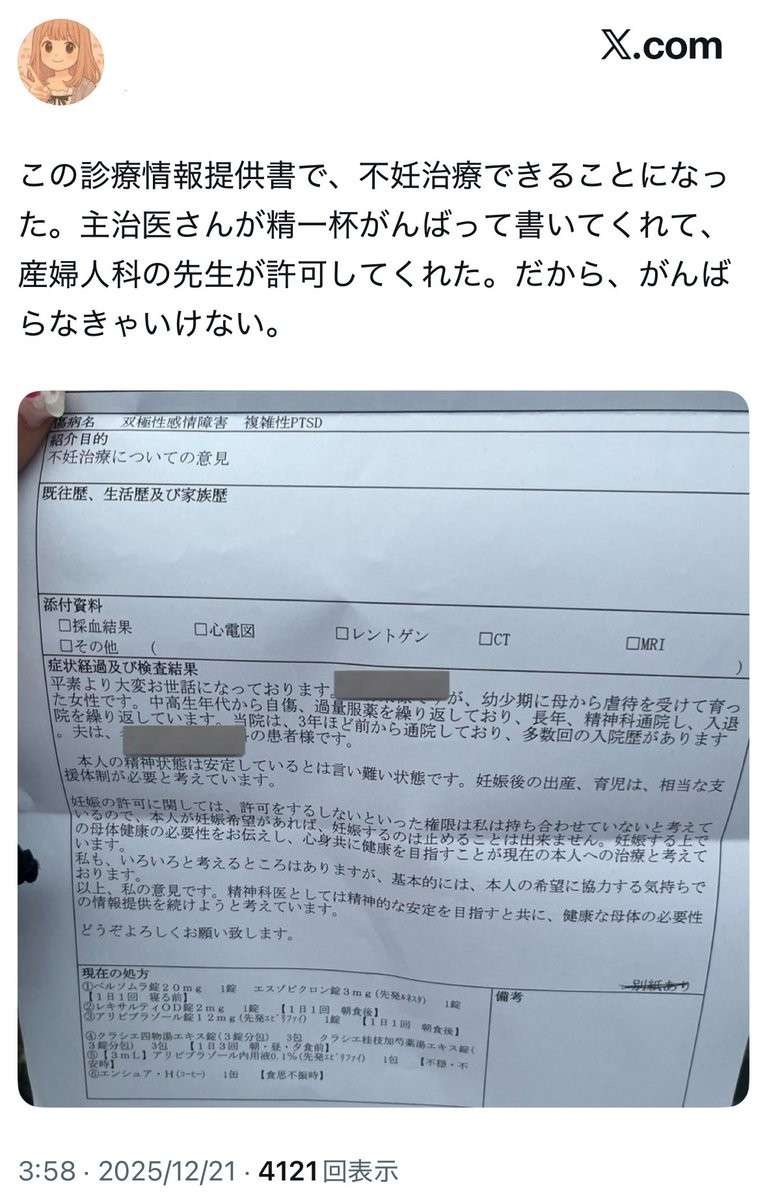 𝕏.com
この診療情報提供書で、不妊治療できることになっ
た。主治医さんが精一杯がんばって書いてくれて、
産婦人科の先生が許可してくれた。だから、がんば
らなきゃいけない。
傷病名 双極性感情障害 複雑性PTSD
紹介目的
不妊治療についての意見
既往歴、生活歴及び家族歴
添付資料
□採血結果 □心電図 □レントゲン □CT □MRI
□その他 ( )
症状経過及び検査結果
平素より大変お世話になっております。 が、幼少期に母から虐待を受けて育っ
た女性です。中高生年代から自傷、過量服薬を繰り返しており、長年、精神科通院し、入退
院を繰り返しています。当院は、3年ほど前から通院しており、多数回の入院歴があります
。夫は、 の患者様です。
本人の精神状態は安定しているとは言い難い状態です。妊娠後の出産、育児は、相当な支
援体制が必要と考えています。
妊娠の許可に関しては、許可をするしないといった権限は私は持ち合わせていないと考えて
いるので、本人が妊娠希望があれば、妊娠するのは止めることは出来ません。妊娠する上で
の母体健康の必要性をお伝えし、心身共に健康を目指すことが現在の本人への治療と考えて
います。
私も、いろいろと考えるところはありますが、基本的には、本人の希望に協力する気持ちで
おります。
以上、私の意見です。精神科医としては精神的な安定を目指すと共に、健康な母体の必要性
の情報提供を続けようと考えています。
どうぞよろしくお願い致します。
現在の処方
①ベルソムラ錠20mg 1錠 エスゾピクロン錠3mg(先発ﾙﾈｽﾀ) 1錠
【1日1回 寝る前】
②レキサルティOD錠2mg 1錠 【1日1回 朝食後】
③アリピプラゾール錠12mg(先発ｴﾋﾞﾘﾌｧｲ) 1錠 【1日1回 朝食後】
④クラシエ四物湯エキス錠(3錠分包) 3包 クラシエ桂枝加芍薬湯エキス錠(
3錠分包) 3包 【1日3回 朝・昼・夕食前】
⑤【3mL】アリピプラゾール内用液0.1%(先発ｴﾋﾞﾘﾌｧｲ) 1包 【不穏・不
安時】
⑥エンシュア・H(ｺｰﾋｰ) 1缶 【食思不振時】
別紙あり
備考
3:58 · 2025/12/21 · 4121回表示